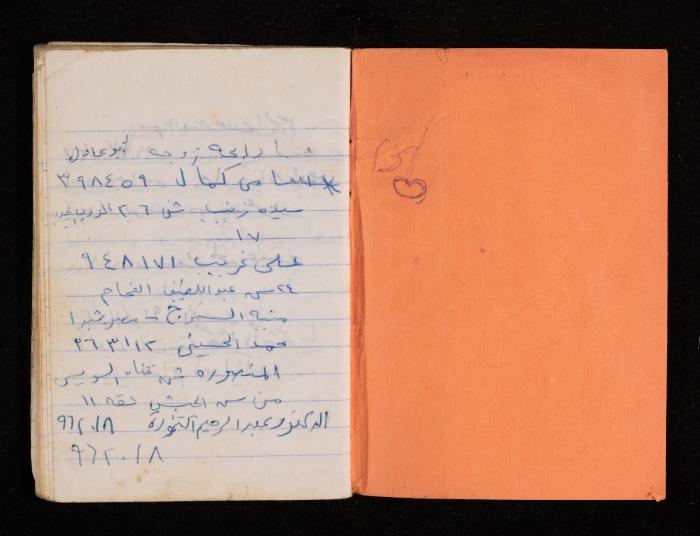 رابحه زوجه أبو عادل
سامى كمال ٣٩٨٤٥٩
سيده زينب ش ٢٠٦
١٧
على غريب ٩٤٨١٧١
٢٤ ش عبد اللطيف الفحام
منية السيرج - مصر شبرا
محمد الحسينى ٣٦٣١١٢
المنصوره ش قناه السويس
من ش الجيش شقه ١١
الدكتور عبد الرحيم ٩٦٢٠١٨
٩٦٢٠١٨